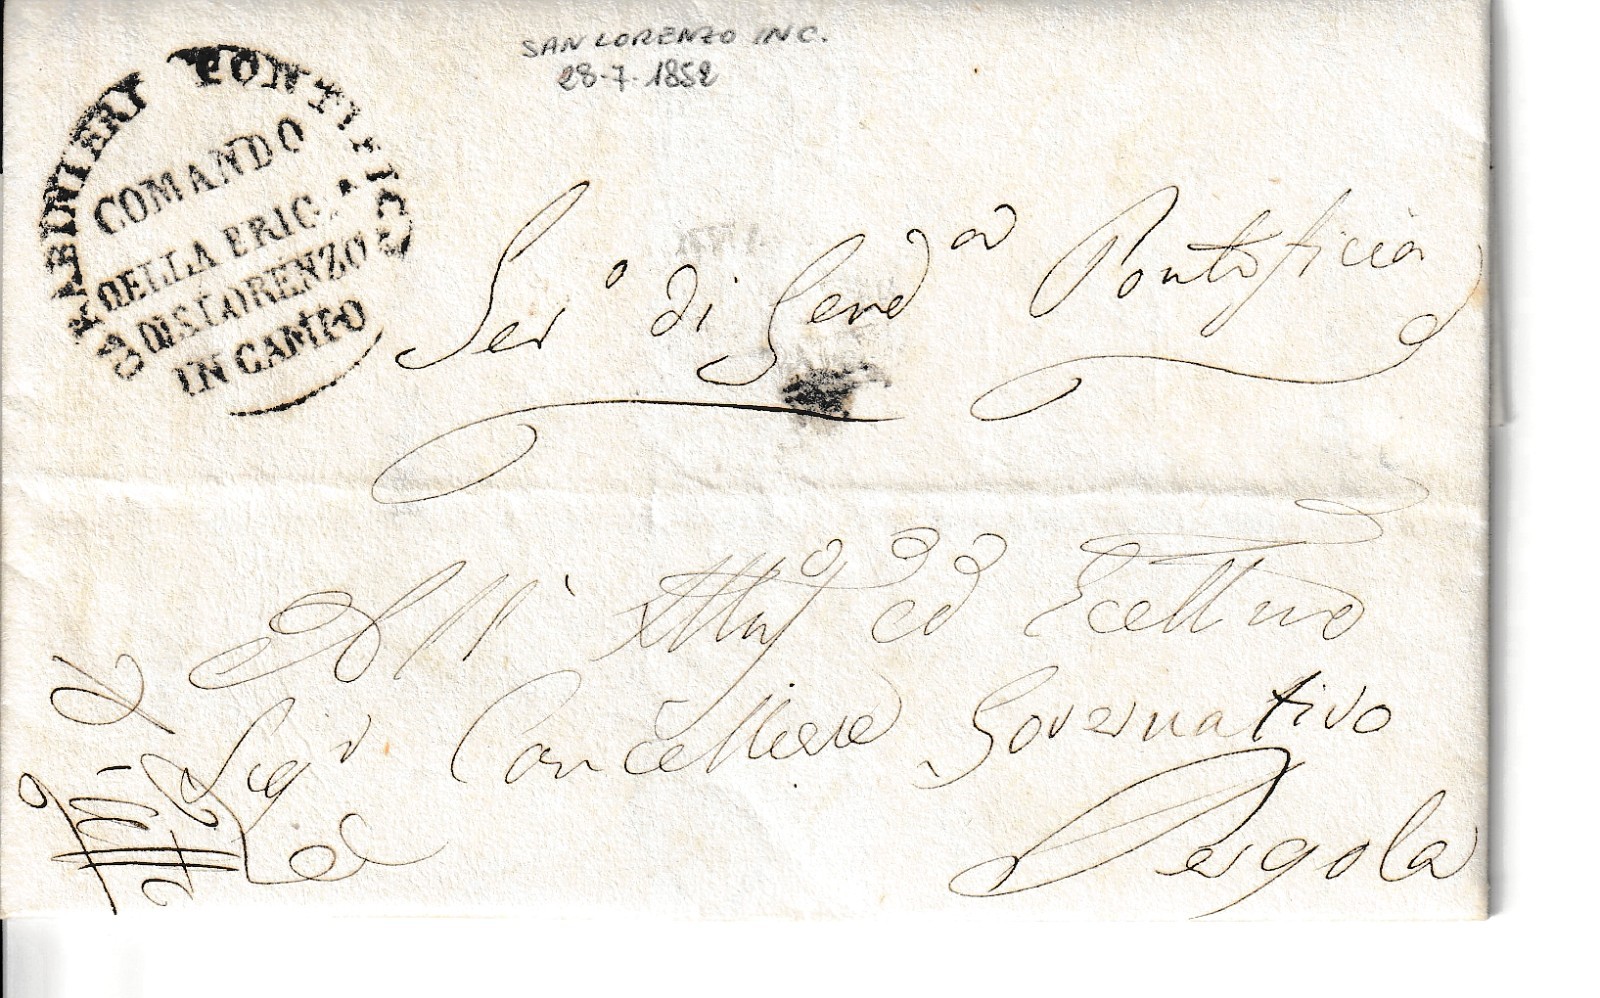 SAN LORENZO IN C.
28-7-1852
CARABINIERI PONTIFICI
COMANDO
DELLA BRIG.A
DI S. LORENZO
IN CAMPO
Ser.o di Gend.a Pontificia
All' Illmo ed Eccellmo
Sig.r Cancelliere Governativo
Pergola